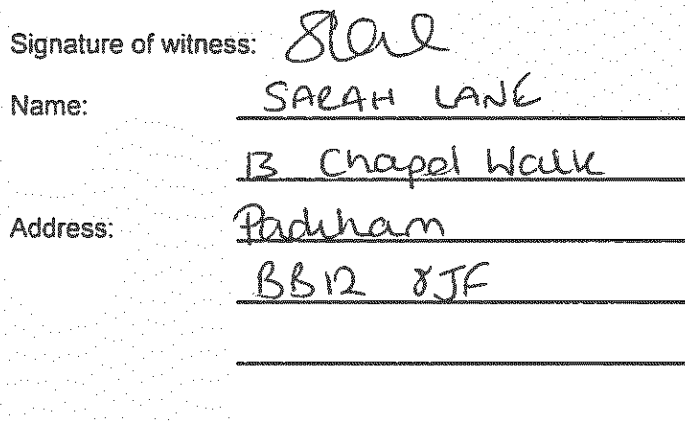 Signature of witness: Slane
Name: SARAH LANE
13 Chapel Walk
Address: Padiham
BB12 8JF